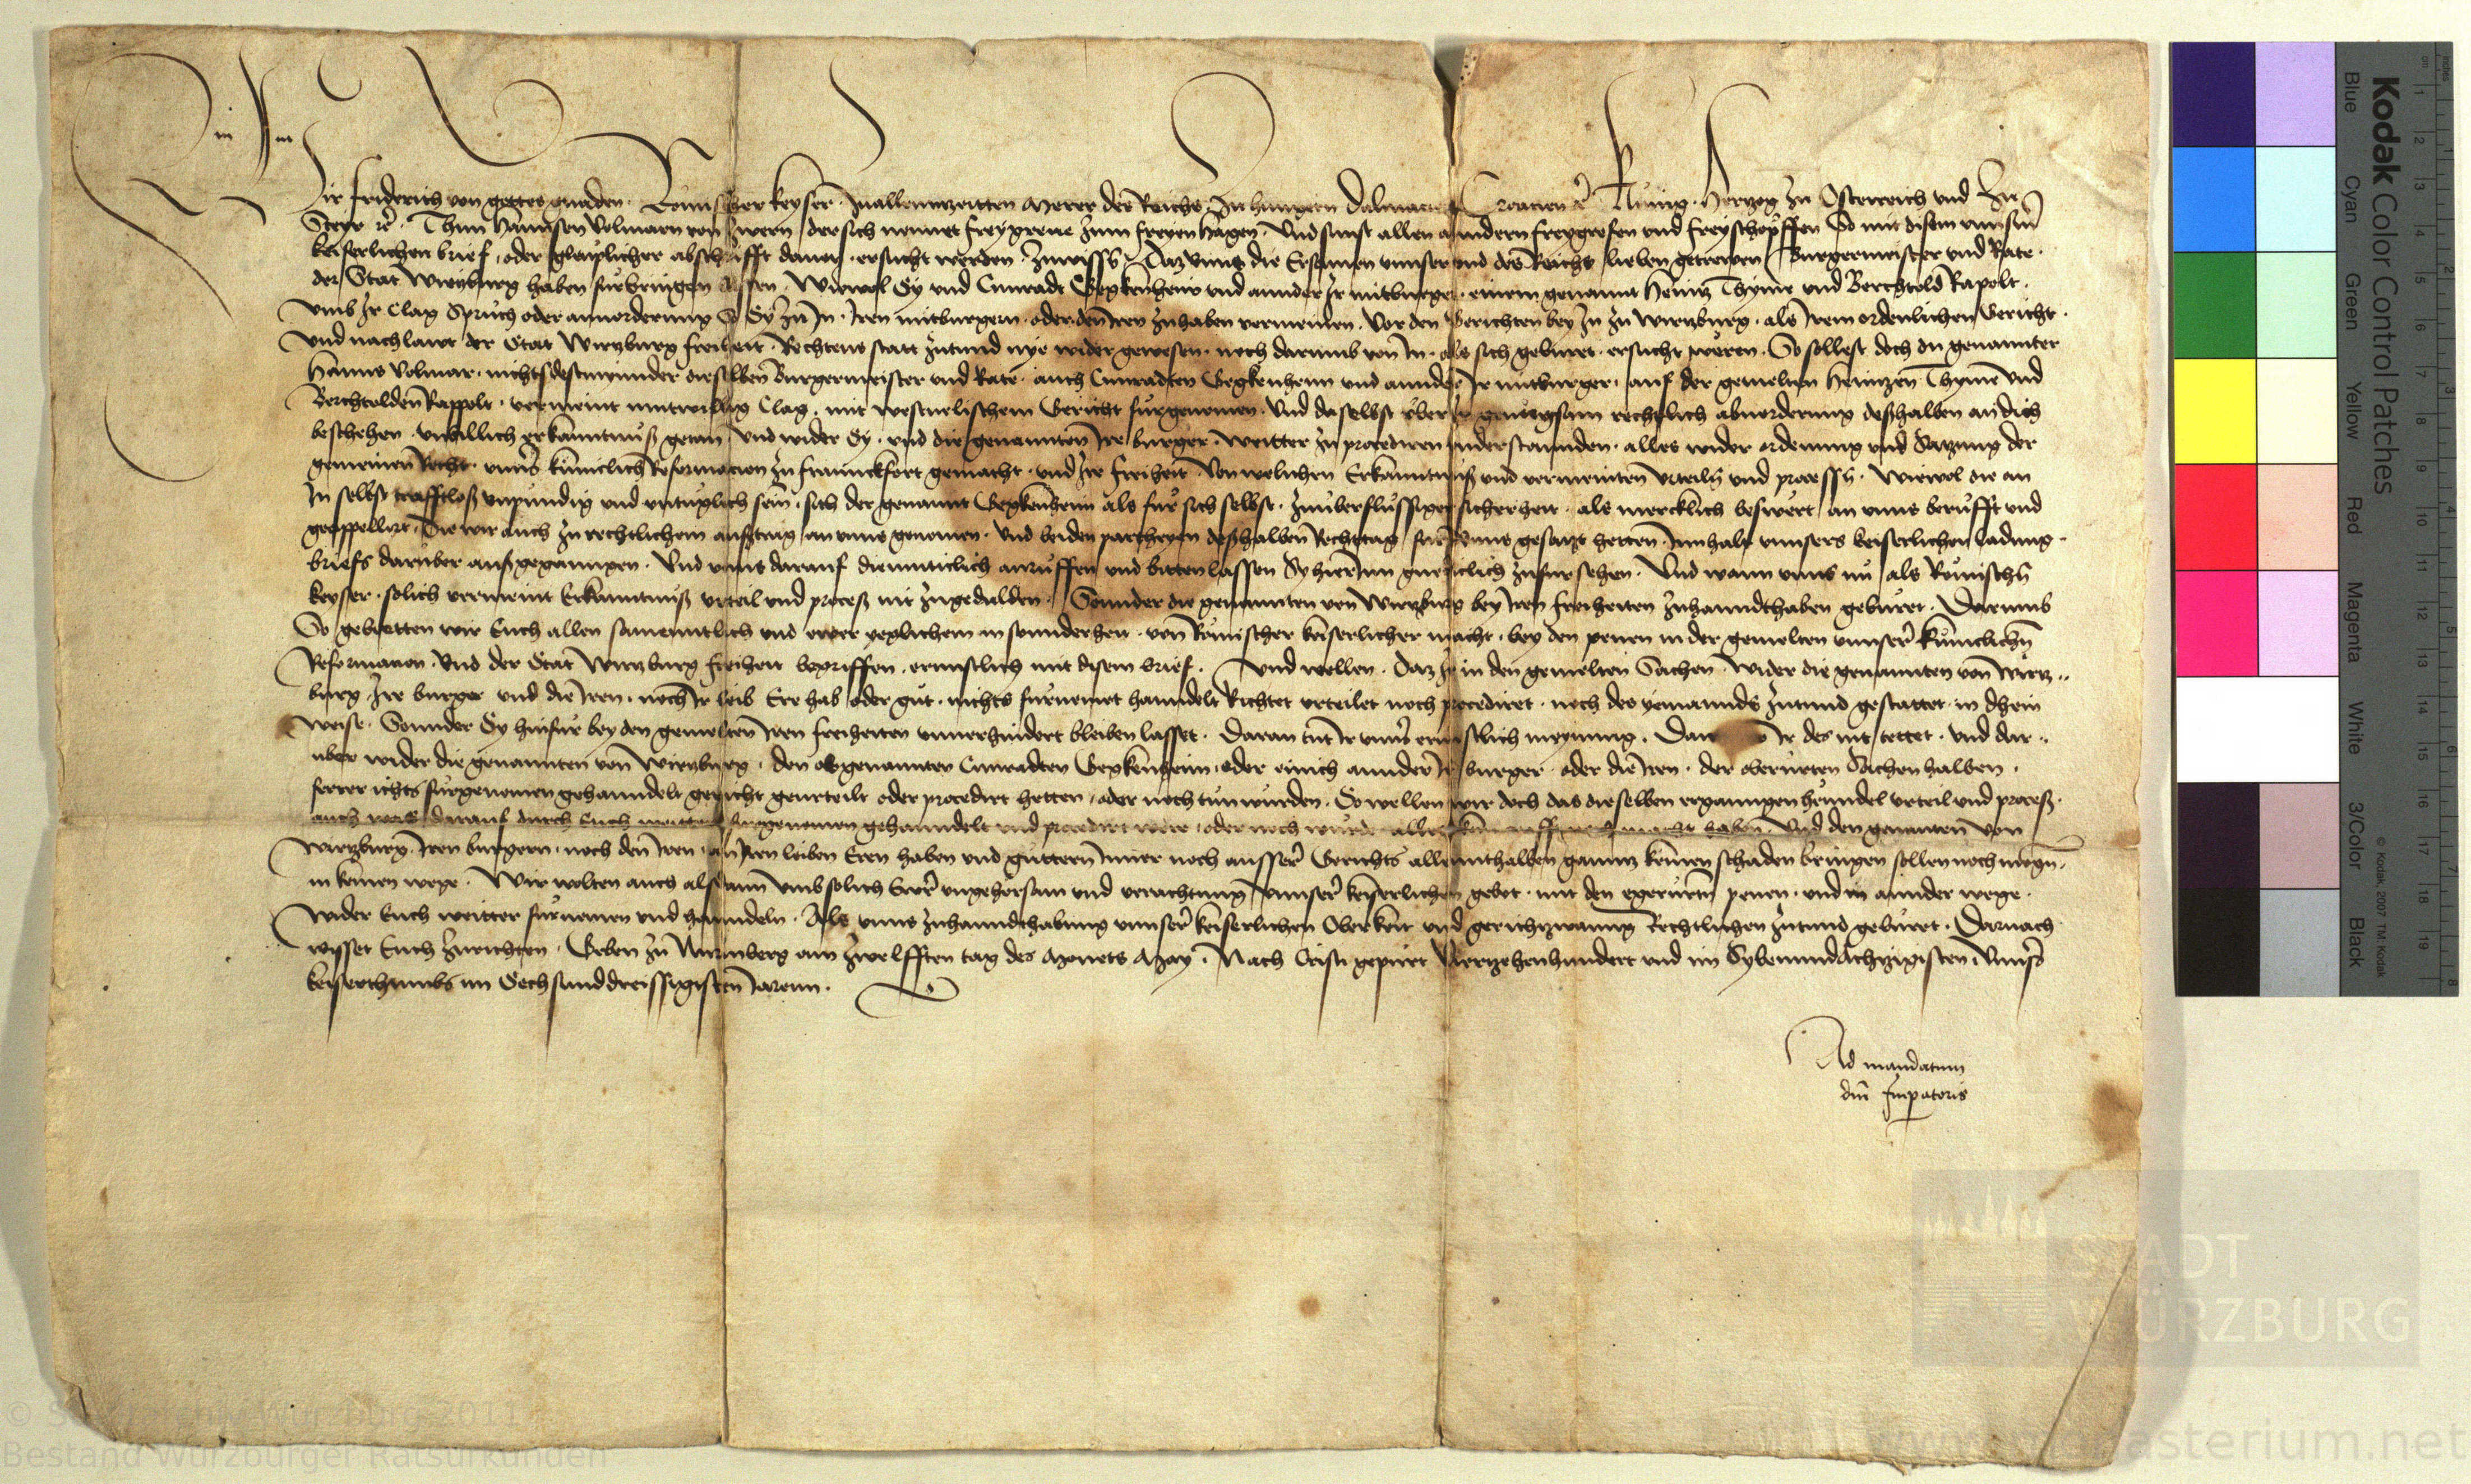 Wir Friderich von gottes gnaden Romischer Keyser zuallennzeitten Merer des Reichs zu Hungern Dalmacien Croacien ꝛc̃ Kunig Hertzog zu Osterreich vnd zu
Steyr ꝛc̃ Thun Hannsen Volmarn von der sich nennet freygreue zum freyenhagen Vnd sunst allen anndern freygrefen vnd freyschopffen So mit disem vnnserm
keiserlichen brief oder glauplicher abschrifft dauon ersucht werden zuwissen Daz vnns die Ersamen vnnser vnd des Reichs lieben getrewen Burgermeister vnd Rate
der Stat Wirtzburg haben furbringen lassen Wiewol Sy vnd Cunradt Gegkenheim vnd annder Ir mitburger einem genannt Heintz Thyme vnd Berchtold Rapolt
vmb Ir Clag Spruch oder annorderung So Sy zu In Iren mitburgern oder den Iren zuhaben vermeinen Vor den Gerichten bey In zu Wirtzburg als Irem ordenlichen Gericht
vnd nachlawt der Stat Wirtzburg freiheit Rechtens statt zutund nye wider gewesen noch darumb von In als sich geburet ersucht weren So sollest doch du genannter
Hanns Volmar nichtsdestmynnder dieselben Burgermeister vnd Rate auch Cunradten Gegkenheim vnd annder Ir mitburger auf der gemelten Heintzen Thyme vnd
Berchtolden Rappolt vermeint mutwillig Clag mit westuelischem Gericht furgenomen Vnd daselbst vber Ir gnugsam rechtlich abuorderung deßhalben an dich
beschehen vnbillich erkanntnuß getan vnd wider Sy vnd die genannten Ire burger weitter zu procediren vnderstannden alles wider ordenung vnd Satzung der
gemeinen Recht vnnser kuniclich Reformacion zu Franckfort gemacht vnd Ire freiheit Von welichen Erkanntnuß vnd vermeinten vrteiln vnd processen Wiewol die an
In selbst crafftloß vnpundig vnd vntuglich sein sich der genannt Gegkenheim als fur sich selbst zuuberflussiger sicherheit als mercklich beswert an vnns berufft vnd
geappellirt Die wir auch zu rechtlichem austrag an vnns genomen vnd beiden partheyen deßhalben Rechttag fur vnns gesatzt hetten Innhalt vnnsers keiserlichen ladung
briefs daruber außgegangen Vnd vnns darauf diemuticlich anruffen vnd bitten lassen Sy hierInn gnediclich zufursehen Vnd wann vnns nu als Romischen
keyser solich vermeint Erkanntnuß vrteil vnd proceß nit zugedulden Sonnder die genannten von Wirtzburg bey Iren freiheiten zuhanndthaben geburet Darumb
So gebietten wir Euch allen samenntlich vnd ewer yeglichem in sonnderheit von Romischer keiserlicher macht bey den penen in der gemelten vnnser kuniclichen
Reformacion vnd der Stat Wirtzburg freiheit begriffen ernnstlich mit disem brief vnd wellen Daz Ir in den gemelten Sachen wider die genannten von Wirtz
burg Ire burger vnd die Iren noch Ir leib Ere hab oder gut nichts furnemet hanndelt Richtet vrteilet noch procediret noch des yemannds zutund gestattet in dhein
weise Sonnder Sy hinfur bey den gemelten Iren freiheiten vnuerhindert bleiben lasset Daran tut Ir vnnser ernnstlich meynung Dann Ir des nit tettet vnd dar
uber wider die genannten von Wirtzburg den obgenannten Cunradten Gegkenheim oder einich annder Ir burger oder die Iren der oberurten Sachen halben
ferrer ichts furgenomen gehanndelt gericht geurteilt oder procedirt hetten oder noch tun wurden So wellen wir doch das dieselben ergangen hanndel vrteil vnd proceß
auch was darauf durch Euch weitter furgenomen gehanndelt vnd procedirt were oder noch wurde haben Vnd den genanten von
Wirtzburg Iren burgern noch den Iren an Iren leiben Eren haben vnd guttern Inner noch ausser Gerichts allennthalben ganntz keinen schaden bringen sollen noch mogen
in keinen wege Wir wolten auch alsdann vmb solich Ewr vngehorsam vnd verachtung vnnser keiserlichen gebot mit den egerurten penen vnd in annder wege
wider Euch weitter furnemen vnd hanndeln Als vnns zuhanndthabung vnnser keiserlichen Oberkeit vnd gerichtzwanng Rechtlichen zutund geburet Darnach
wisset Euch zurichten Geben zu Nuremberg am zwelfften tag des Monets May Nach Cristi gepurt Viertzehenhundert vnd im Sybenundachtzigisten Vnnsers
keiserthumbs im Sechsunddreissigisten Jarenn
Ad mandatum
dni Imperatoris
Kodak Color Control Patches
Blue Cyan Green Yellow Red Magenta White 3/Color Black
© Kodak, 2007 TM: Kodak
STADT
WÜRZBURG
© Stadtarchiv Würzburg 2011
Bestand Würzburger Ratsurkunden
www.monasterium.net